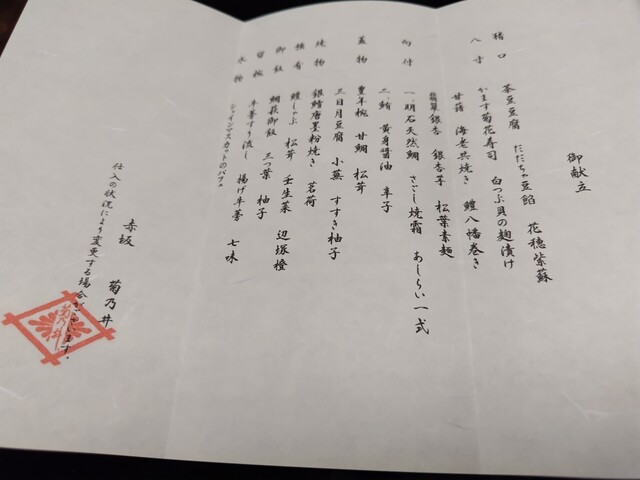 御献立
猪口　茶豆豆腐　だだちゃ豆餡　花穂紫蘇
八寸　かます菊花寿司　白つぶ貝の麹漬け
甘藷　海老共焼き　鱧八幡巻き
銀杏　銀杏芋　松葉素麺
向付　一、明石天然鯛　さごし焼霜　あしらい一式
二、鮪　黄身醤油　辛子
蓋物　豊年椀　甘鯛　松茸
三日月豆腐　小蕪　すすき柚子
焼物　銀鱈唐墨粉焼き　茗荷
強肴　鱧しゃぶ　松茸　壬生菜　辺塚橙
御飯　鯛萩御飯　三つ葉　柚子
留椀　牛蒡すり流し　揚げ牛蒡　七味
水物　シャインマスカットのパフェ
赤坂　菊乃井
仕入の状況により変更する場合がございます。
菊乃井